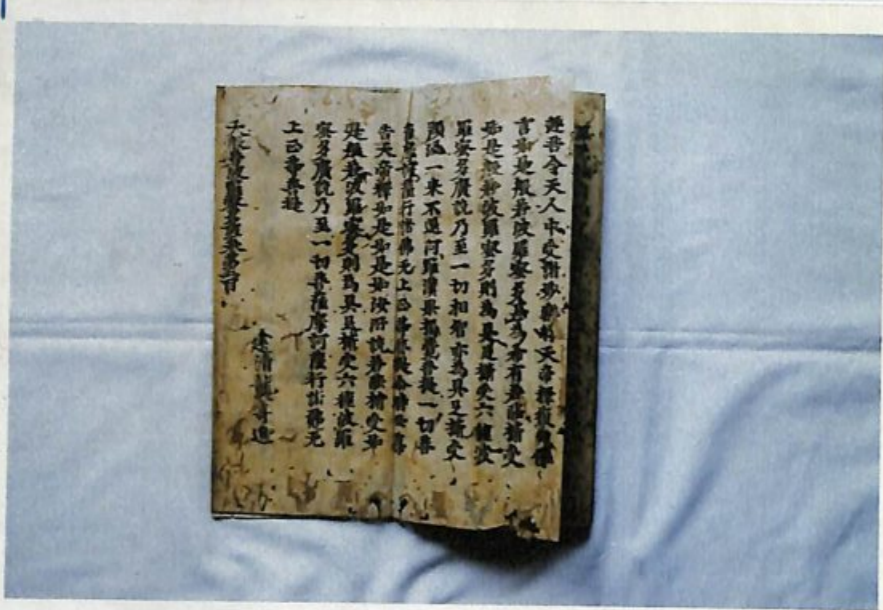 令天人中受諸妙樂時天帝釋復白佛
言如是般若波羅蜜多甚為希有若能攝受
如是般若波羅蜜多則為具足攝受六種波
羅蜜多廣說乃至一切相智亦為具足攝受
預流一来不還阿羅漢果獨覺菩提一切菩
薩摩訶薩行諸佛无上正等菩提尒時世尊
告天帝釋如是如是如汝所說若能攝受如
是般若波羅蜜多則為具足攝受六種波羅
蜜多廣說乃至一切菩薩摩訶薩行諸佛无
上正等菩提
般若波羅蜜多經卷第百